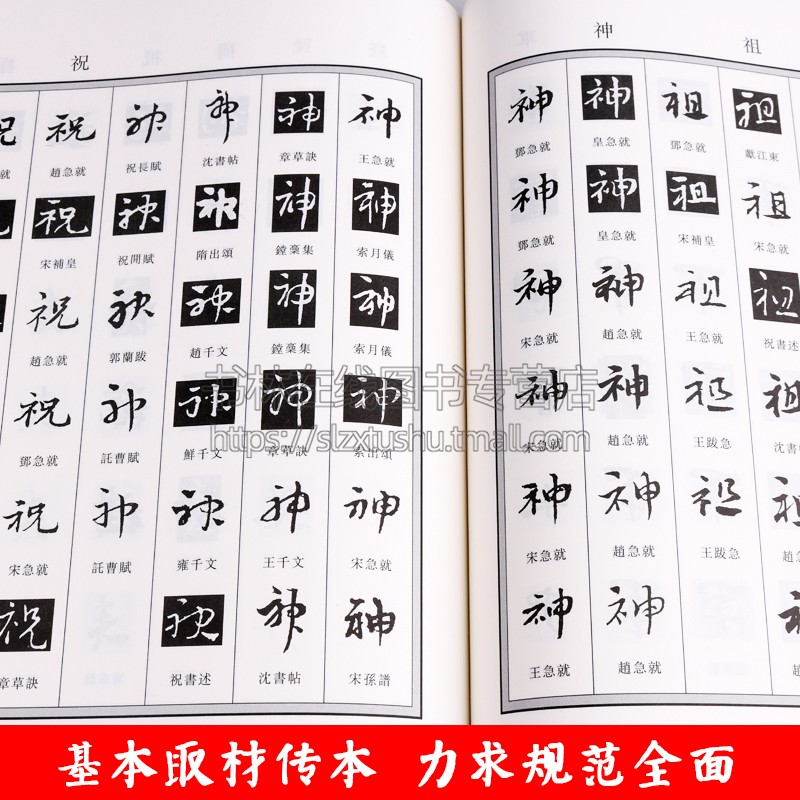 祝
祝 祝 神 神 神 神
就 趙急就 祝長賦 沈書帖 章草訣 王急就
祝 神 神 神 神
宋補皇 祝閒賦 隋出頌 鏜藁集 索月儀
祝 神 神 神 神
趙急就 郭蘭跋 趙千文 鏜藁集 索月儀
祝 神 神 神 神
鄧急就 託曹賦 鮮千文 章草訣 索出頌
祝 神 神 神 神
宋急就 託曹賦 雍千文 王千文 宋急就
祝 神 神 神
章草訣 祝書述 沈書帖 宋孫譜
神 祖
神 神 祖 祖
鄧急就 皇急就 鄧急就 獻江東
神 神 祖 祖
鄧急就 皇急就 宋補皇 宋急就
神 神 祖 祖
宋急就 趙急就 王急就 祝書述
神 神 祖 祖
宋急就 趙急就 王跋急 沈書帖
神 神 祖
宋急就 趙急就 王跋急 趙急
神 神
王急就 趙急就
书林在线图书专营店
https://slzxtushu.tmall.com
基本取材传本 力求规范全面